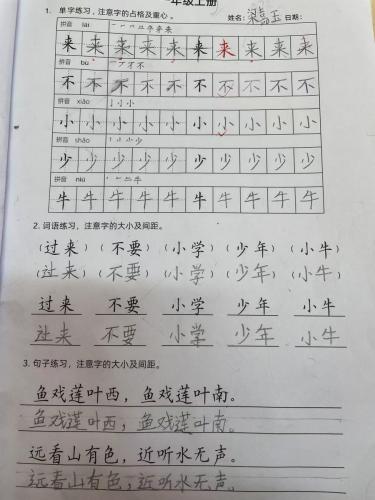 一年级上册
1. 单字练习,注意字的占格及重心。 姓名: 梁 玉 日期:
拼音 lái
来 来 来 来 来 来 来 来 来 来
拼音 bù
不 不 不 不 不 不 不 不 不 不
拼音 xiǎo
小 小 小 小 小 小 小 小 小 小
拼音 shǎo
少 少 少 少 少 少 少 少 少 少
拼音 niú
牛 牛 牛 牛 牛 牛 牛 牛 牛 牛
2. 词语练习,注意字的大小及间距。
(过来) (不要) (小学) (少年) (小牛)
(过来) (不要) (小学) (少年) (小牛)
过来 不要 小学 少年 小牛
过来 不要 小学 少年 小牛
3. 句子练习,注意字的大小及间距。
鱼戏莲叶西,鱼戏莲叶南。
鱼戏莲叶西,鱼戏莲叶南。
远看山有色,近听水无声。
远看山有色,近听水无声。